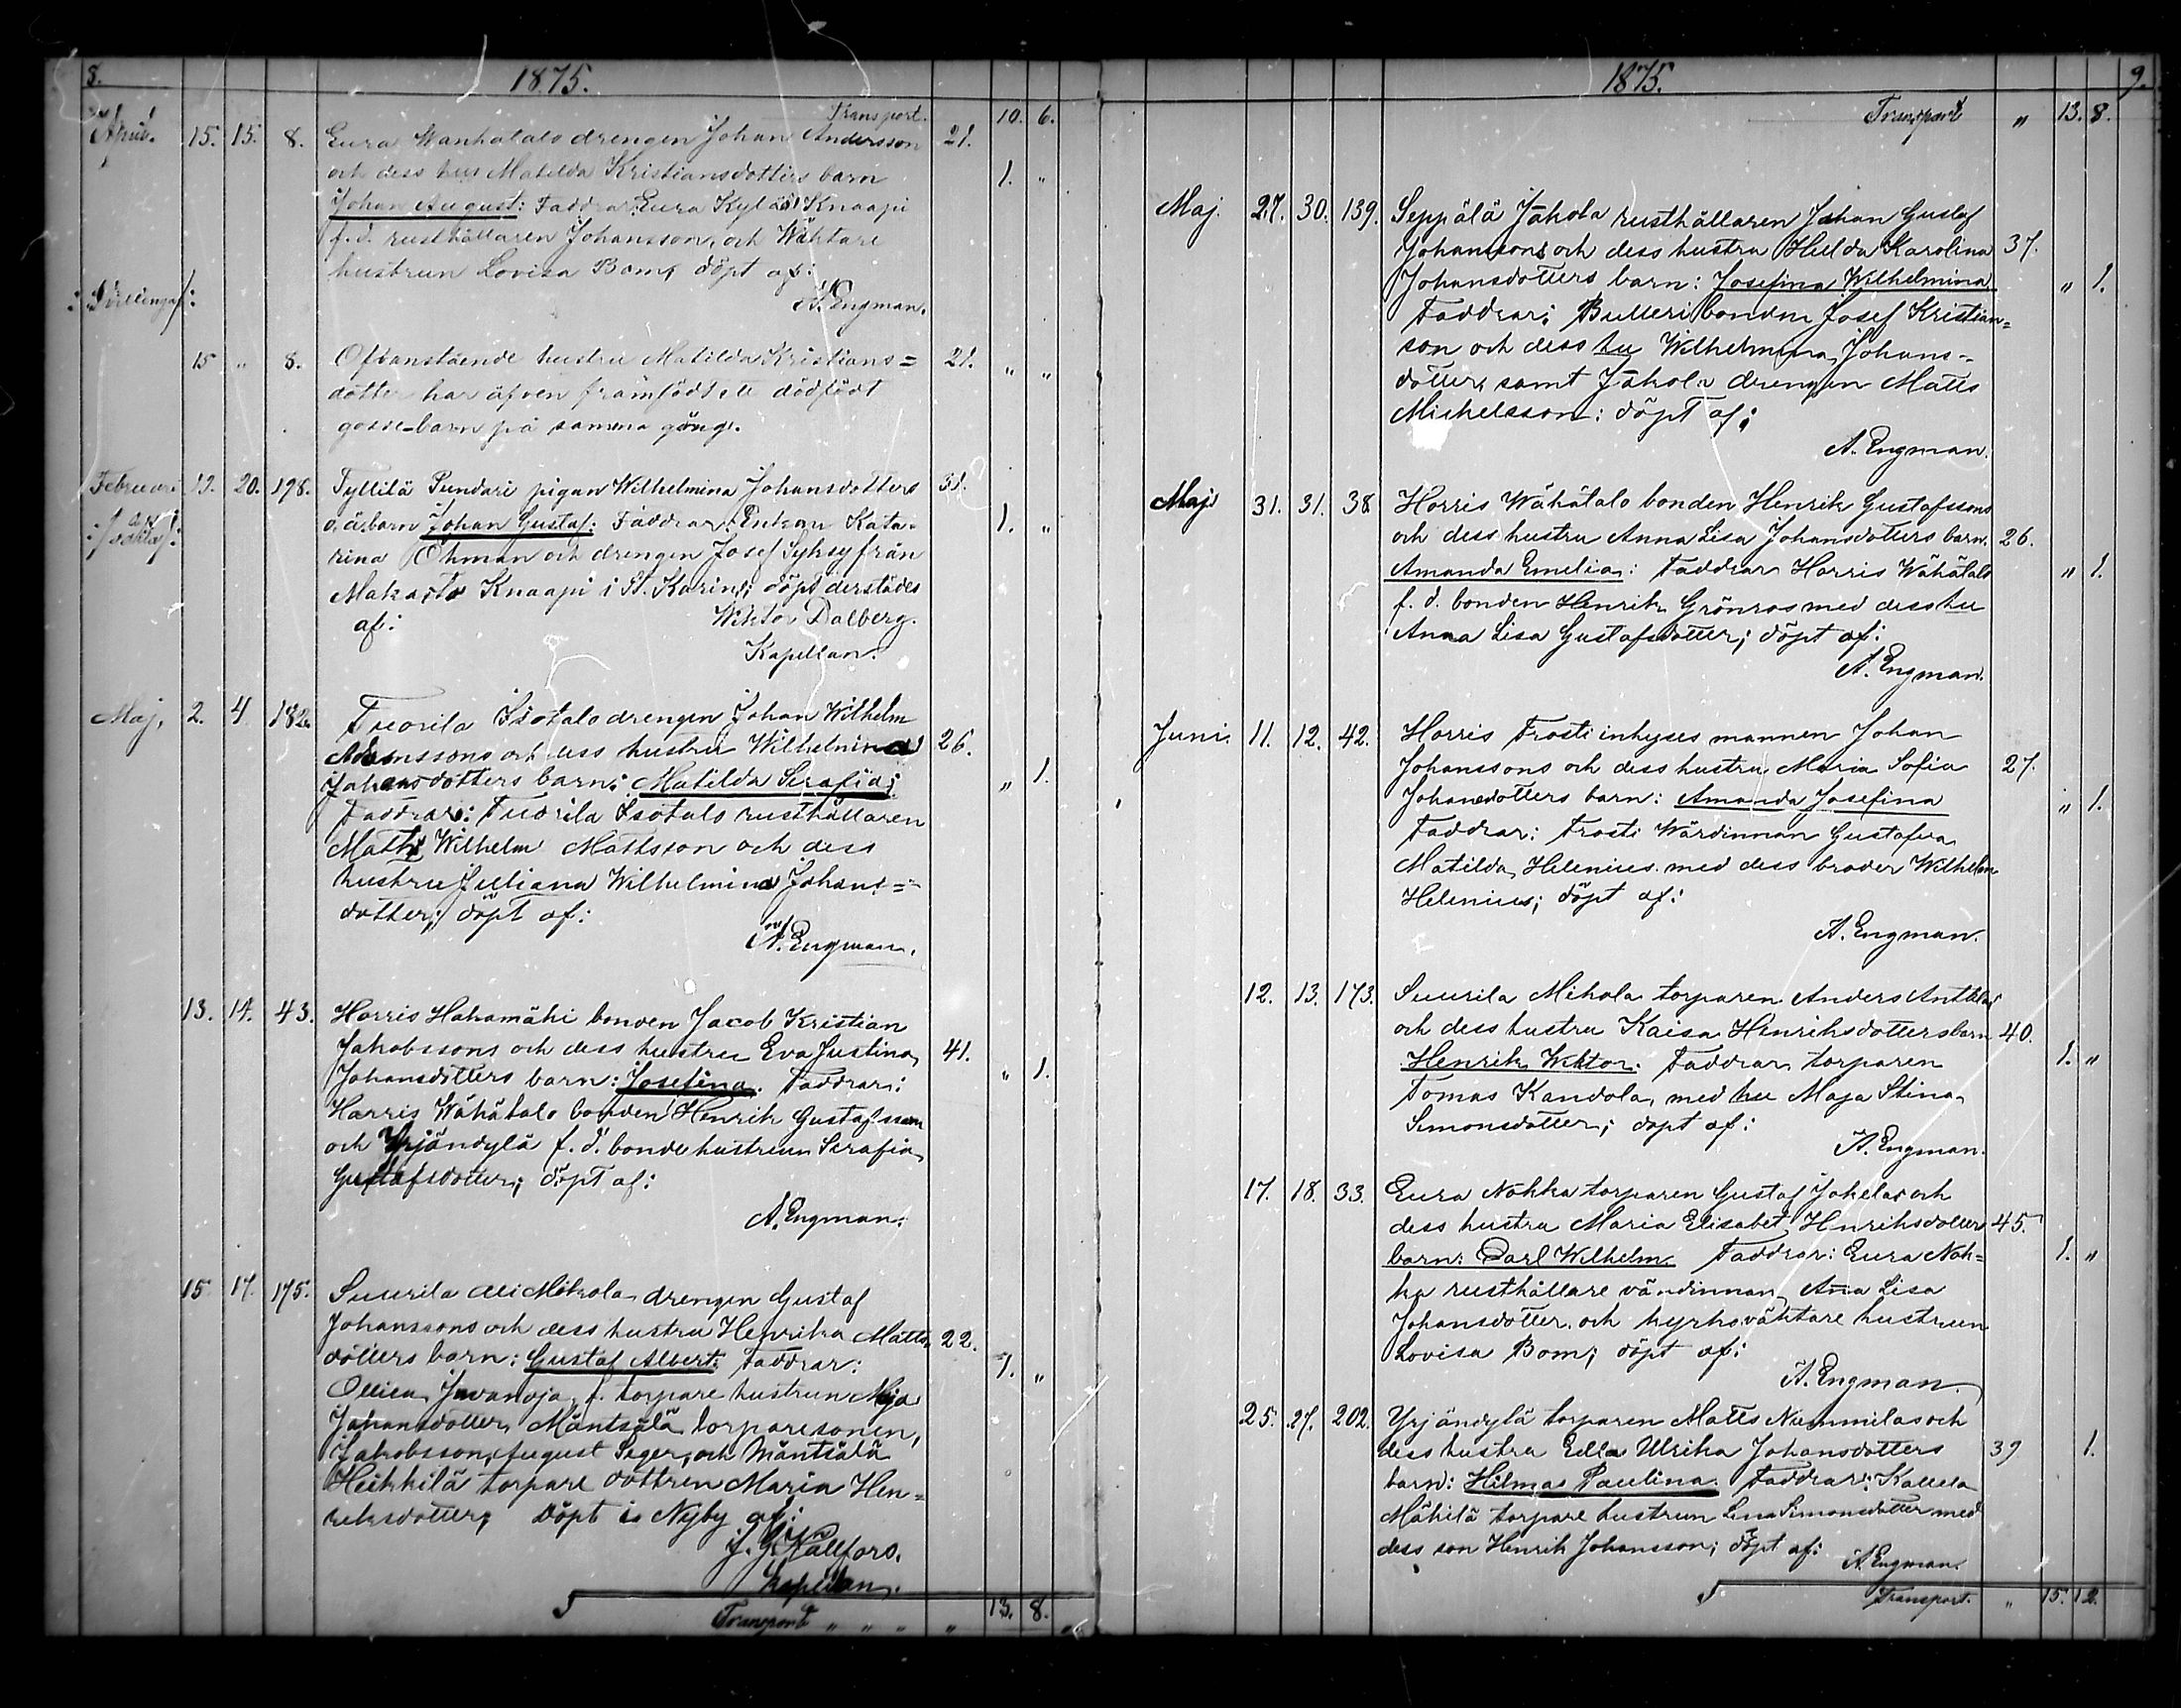 8.
1875.
Transport. 10. 6.
April. 15. 15. 8. Eura Wanhatalo drengen Johan Andersson 21.
och dess hus Matilda Kristiansdotters barn 1. "
Johan August: Faddrar: Eura Kylä Knaapi
f.d. rusthållaren Johansson, och Wäktare
hustrun Lovisa Bom; döpt af:
A. Engman.
15 " 8. Ofvanstående hustru Matilda Kristians= 21. " "
dotter har äfven framfödt ett dödfödt
gosse-barn på samma gång.
Februari 19. 20. 198. Tyllilä Pundari pigan Wilhelmina Johansdotters 31.
o.ä. barn Johan Gustaf: Faddrar: Enkan Kata- 1. "
rina Öhman och drengen Josef Syksy från
Makarto Knaapi i St. Karins; döpt derstädes
af: Wiktor Dalberg.
Kapellan.
Maj. 2. 4 182. Tuorila Isotalo drengen Johan Wilhelm
Adamssons och dess hustru Wilhelmina 26.
Johansdotters barn: Matilda Serafia; " 1.
Faddrar: Tuorila Isotalo rusthållaren
Matts Wilhelm Mattsson och dess
hustru Juliana Wilhelmina Johans=
dotter; döpt af:
A. Engman.
13. 14. 43. Horris Hakamäki bonden Jacob Kristian
Jakobssons och dess hustru Eva Justina 41.
Johansdotters barn: Josefina. Faddrar: " 1.
Harris Wähätalo bonden Henrik Gustafsson
och Yrjändylä f.d. bonde hustrun Serafia
Gustafsdotter; döpt af:
A. Engman.
15. 17. 175. Suurila Ali Mikola drengen Gustaf
Johanssons och dess hustru Henrika Matts- 22.
dotters barn: Gustaf Albert: Faddrar: 1. "
Ollila Juvanoja f. torpare hustrun Maja
Johansdotter, Mäntsälä torparesonen,
Jakobsson, August Seger, och Mäntsälä
Heikkilä torpare dottren Maria Hen=
riksdotter; Döpt i Nyby af:
J. G. Hallfors.
Kapellan.
Transport " " " " 13. 8.
1875. 9.
Transport " 13. 8.
Maj. 27. 30. 139. Seppälä Jakola rusthållaren Johan Gustaf
Johanssons och dess hustru Hilda Karolina 37.
Johansdotters barn: Josefina Wilhelmina " 1.
Faddrar: Bulleri bonden Josef Kristian=
son och dess hu Wilhelmina Johans-
dotter, samt Jakola drengen Matts
Michelsson: döpt af:
A. Engman.
Maj 31. 31. 38 Horris Wähätalo bonden Henrik Gustafssons
och dess hustru Anna Lisa Johansdotters barn. 26.
Amanda Emelia: Faddrar Horris Wähätalo " 1.
f.d. bonden Henrik Grönros med dess hu
Anna Lisa Gustafsdotter; döpt af:
A. Engman.
Juni. 11. 12. 42. Horris Frosti inhyses mannen Johan
Johanssons och dess hustru Maria Sofia 27.
Johansdotters barn: Amanda Josefina " 1.
Faddrar: Frosti Wärdinnan Gustafva
Matilda Helenius med dess broder Wilhelm
Helenius; döpt af:
A. Engman.
12. 13. 173. Suurila Mikola torparen Anders Anttila
och dess hustru Kaisa Henriksdotters barn 40.
Henrik Wiktor. Faddrar torparen 1. "
Tomas Kandola, med hu Maja Stina
Simonsdotter; döpt af:
A. Engman.
17. 18. 33. Eura Nohka torparen Gustaf Jokelas och
dess hustru Maria Elisabet Henriksdotter 45.
barn: Carl Wilhelm. Faddrar: Eura Noh= 1. "
ka rusthållare värdinnan Anna Lisa
Johansdotter, och kyrkoväktare hustrun
Lovisa Bom; döpt af:
A. Engman.
25. 27. 202. Yrjändylä torparen Matts Nummilas och
dess hustru Edla Ulrika Johansdotters 39 1.
barn: Hilma Paulina. Faddrar: Kallela
Mäkilä torpare hustrun Lena Simonsdotter med
dess son Henrik Johansson; döpt af:
A. Engman.
Transport. " 15. 12.